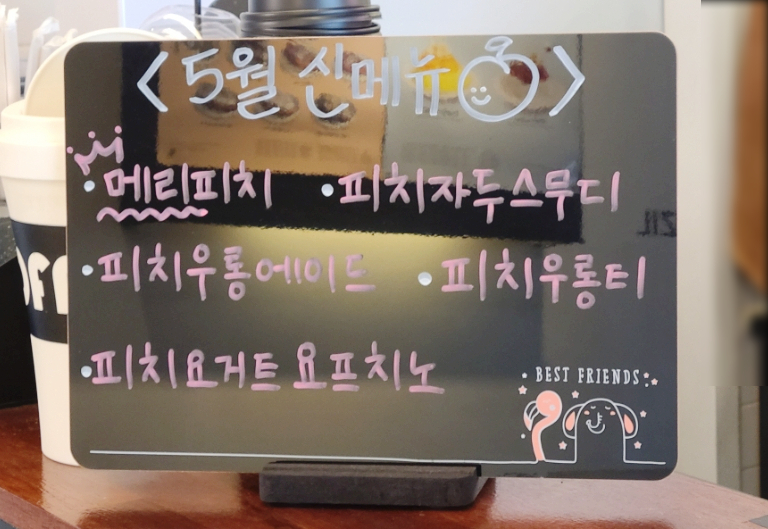 <5월 신메뉴>
• 메리피치 • 피치자두스무디
• 피치우롱에이드 • 피치우롱티
• 피치요거트 요프치노
• BEST FRIENDS •